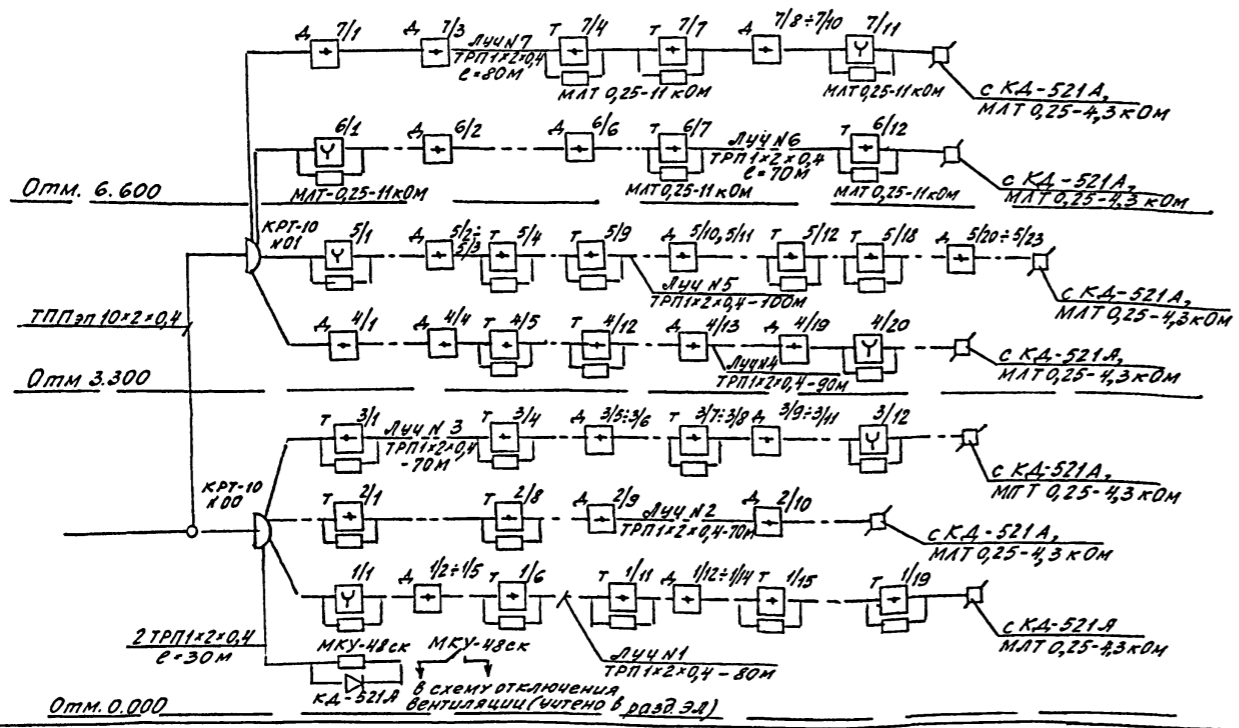 Д 7/1 Д 7/3 Луч N7 Т 7/4 Т 7/7 Д 7/8÷7/10 7/11
ТРП 1×2×0,4
ℓ=80м
МЛТ 0,25-11 кОм МЛТ 0,25-11 кОм
с КД-521А,
МЛТ 0,25-4,3 кОм
6/1 Д 6/2 Д 6/6 Т 6/7 Луч N6 Т 6/12
ТРП 1×2×0,4
ℓ=70м
МЛТ-0,25-11 кОм МЛТ 0,25-11 кОм МЛТ 0,25-11 кОм
с КД-521А,
МЛТ 0,25-4,3 кОм
Отм. 6.600
КРТ-10
N01
5/1 Д 5/2÷5/3 Т 5/4 Т 5/9 Д 5/10, 5/11 Т 5/12 Т 5/18 Д 5/20÷5/23
Луч N5
ТРП 1×2×0,4-100м
с КД-521А,
МЛТ 0,25-4,3 кОм
ТППэп 10×2×0,4
Д 4/1 Д 4/4 Т 4/5 Т 4/12 Д 4/13 Д 4/19 4/20
Луч N4
ТРП 1×2×0,4-90м
с КД-521А,
МЛТ 0,25-4,3 кОм
Отм 3.300
Т 3/1 Луч N 3 Т 3/4 Д 3/5÷3/6 Т 3/7÷3/8 Д 3/9÷3/11 3/12
ТРП 1×2×0,4
-70м
с КД-521А,
МПТ 0,25-4,3 кОм
КРТ-10
N00
Т 2/1 Т 2/8 Д 2/9 Луч N2 Д 2/10
ТРП 1×2×0,4-70м
с КД-521А,
МЛТ 0,25-4,3 кОм
1/1 Д 1/2÷1/5 Т 1/6 Т 1/11 Д 1/12÷1/14 Т 1/15 Т 1/19
Луч N1
ТРП 1×2×0,4-80м
с КД-521А
МЛТ 0,25-4,3 кОм
2 ТРП 1×2×0,4
ℓ=30м
МКУ-48ск МКУ-48ск
КД-521А
в схему отключения
вентиляции (учтено в разд. ЭЛ)
Отм. 0.000